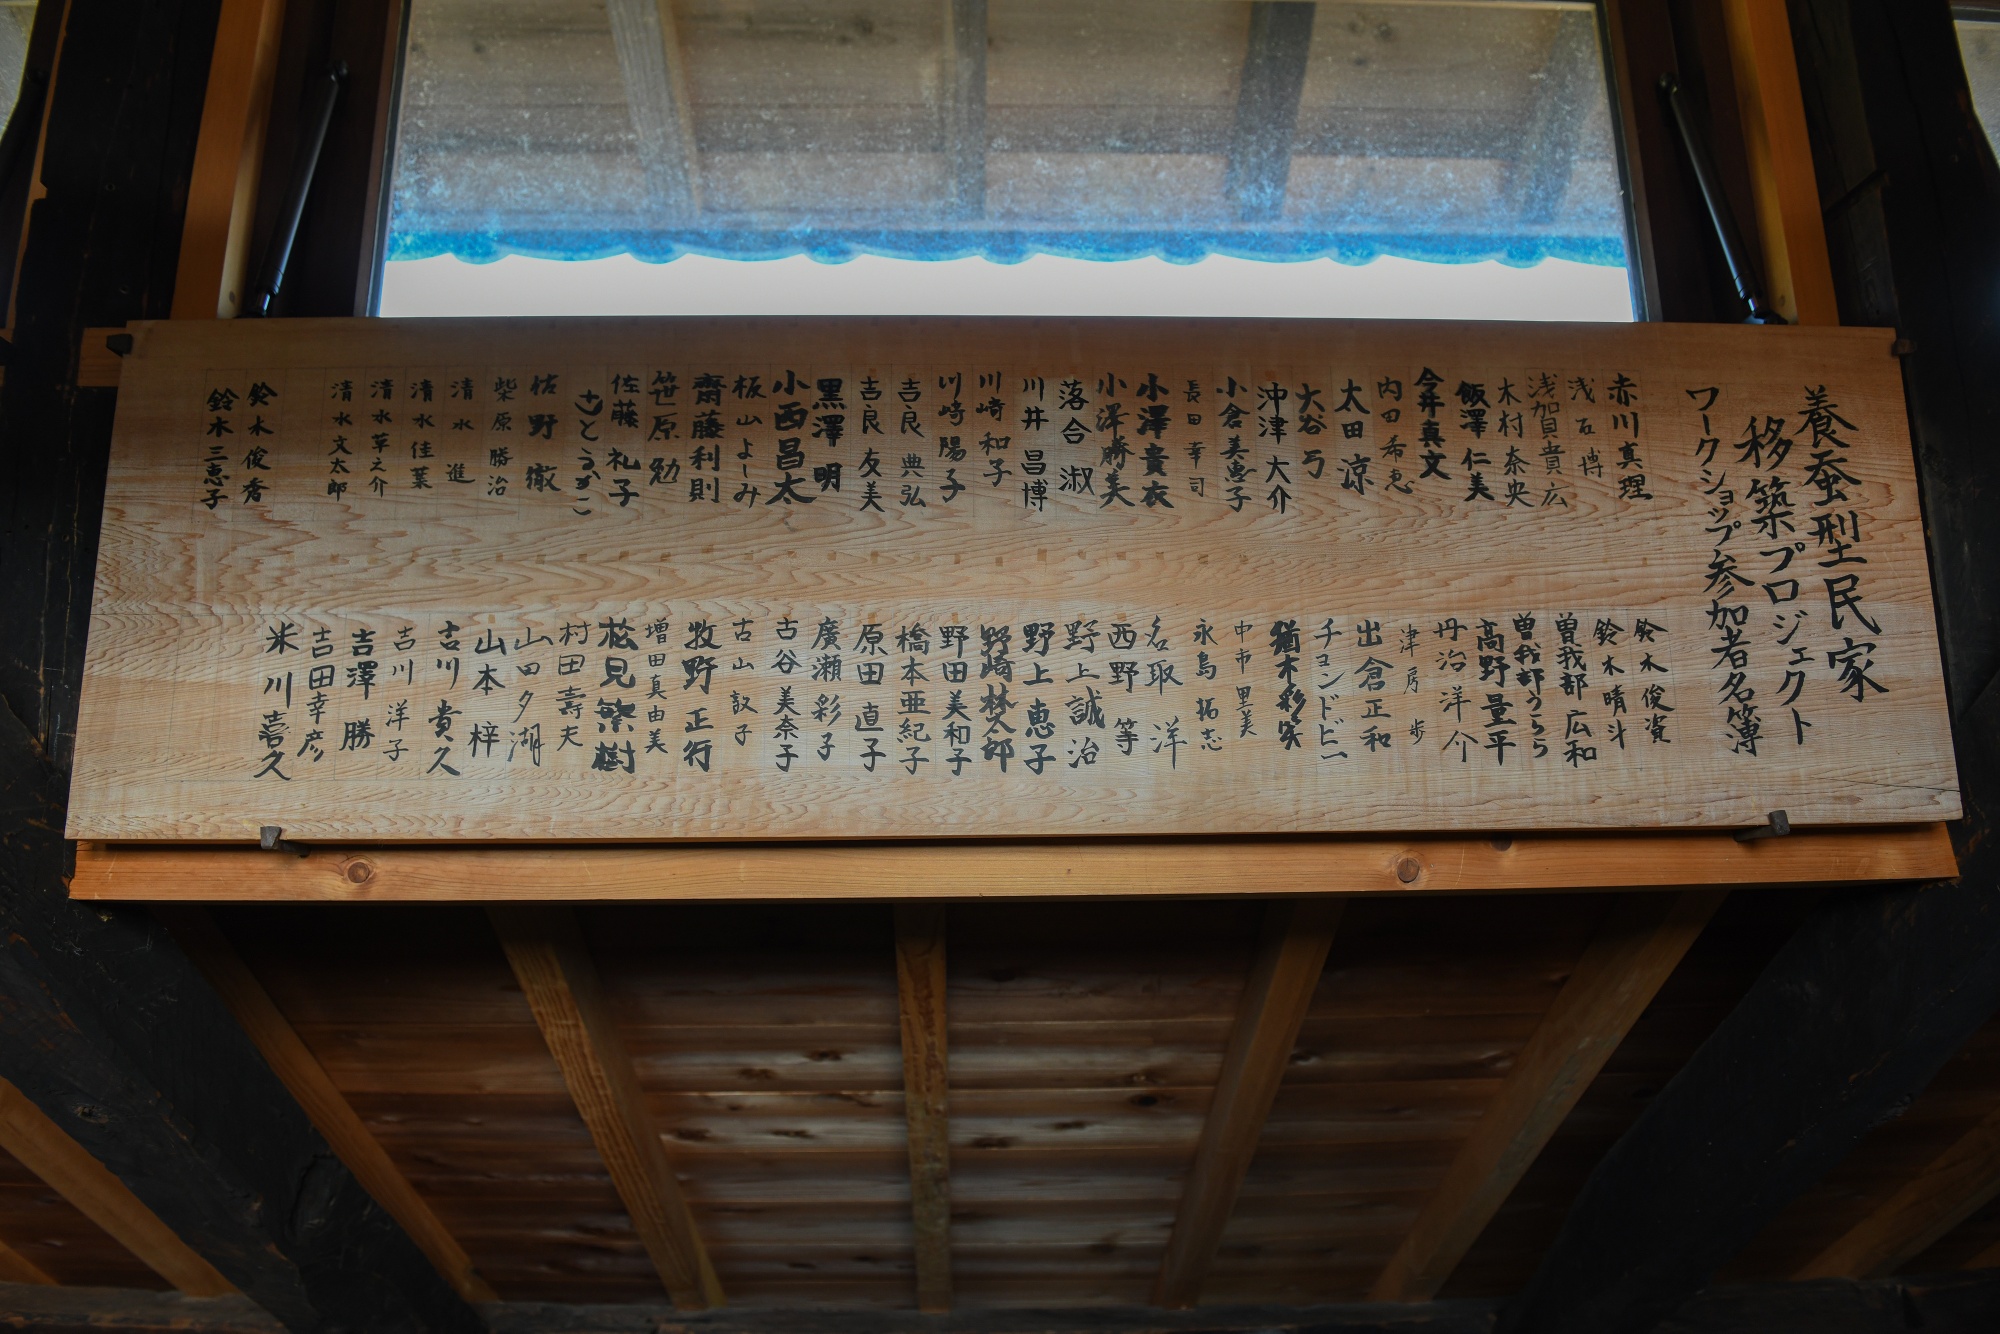 養蚕型民家
移築プロジェクト
ワークショップ参加者名簿
赤川真理
浅石 博
浅加貴広
木村奈央
飯澤仁美
今井真文
内田希恵
太田 涼
大谷 弓
沖津大介
小倉美恵子
長田幸司
小澤貴衣
小澤勝美
落合 淑
川井昌博
川崎和子
川崎陽子
吉良典弘
吉良友美
黒澤 明
小西昌太
板山よしみ
齋藤利則
笹原 勉
佐藤礼子
佐野 徹
柴原勝治
清水 進
清水佳葉
清水草之介
清水文太郎
鈴木俊秀
鈴木三恵子
鈴木俊資
鈴木晴斗
曽我部広和
曽我部うらら
高野量平
丹治洋介
津房 歩
出倉正和
チョンドヒ
木彩実
中市里美
永島拓志
名取 洋
西野 等
野上誠治
野上恵子
野崎林太郎
野田美和子
橋本亜紀子
原田直子
廣瀬彩子
古谷美奈子
古山敦子
牧野正行
増田真由美
松見繁樹
村田壽夫
山田夕湖
山本 梓
吉川貴久
吉川洋子
吉澤 勝
吉田幸彦
米川喜久